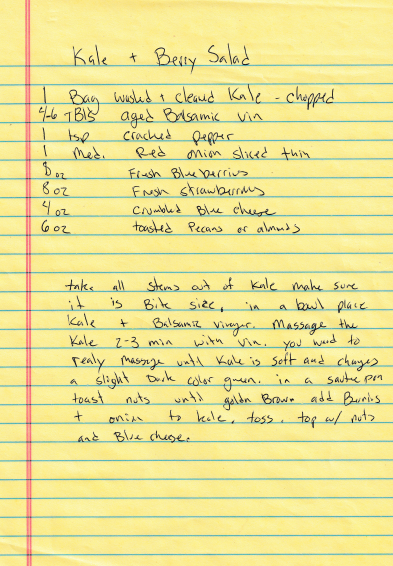 Kale + Berry Salad
1 Bag washed + cleaned Kale - chopped
4-6 TBls aged Balsamic vin
1 tsp cracked pepper
1 Med. Red onion sliced thin
8 oz Fresh Blueberries
8 oz Fresh strawberries
4 oz crumbled Blue cheese
6 oz toasted Pecans or almonds
take all stems out of Kale make sure
it is Bite size, in a bowl place
Kale + Balsamic vinegar. Massage the
Kale 2-3 min with vin. you want to
realy massage until Kale is soft and changes
a slight Dark color green. in a saute pan
toast nuts until goldn Brown add Berries
+ onion to kale, toss, top w/ nuts
and Blue cheese.